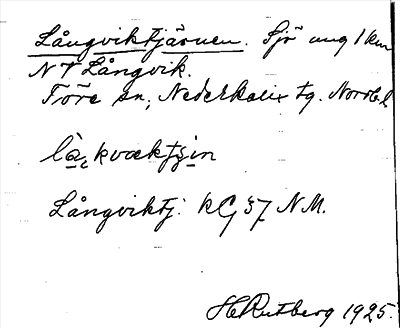 Långviktjärnen. Sjö ung 1 km
N f Långvik.
Töre sn, Nederkalix tg. Norrb. l
Långviktj: kG 57 NM.
H Rutberg 1925.